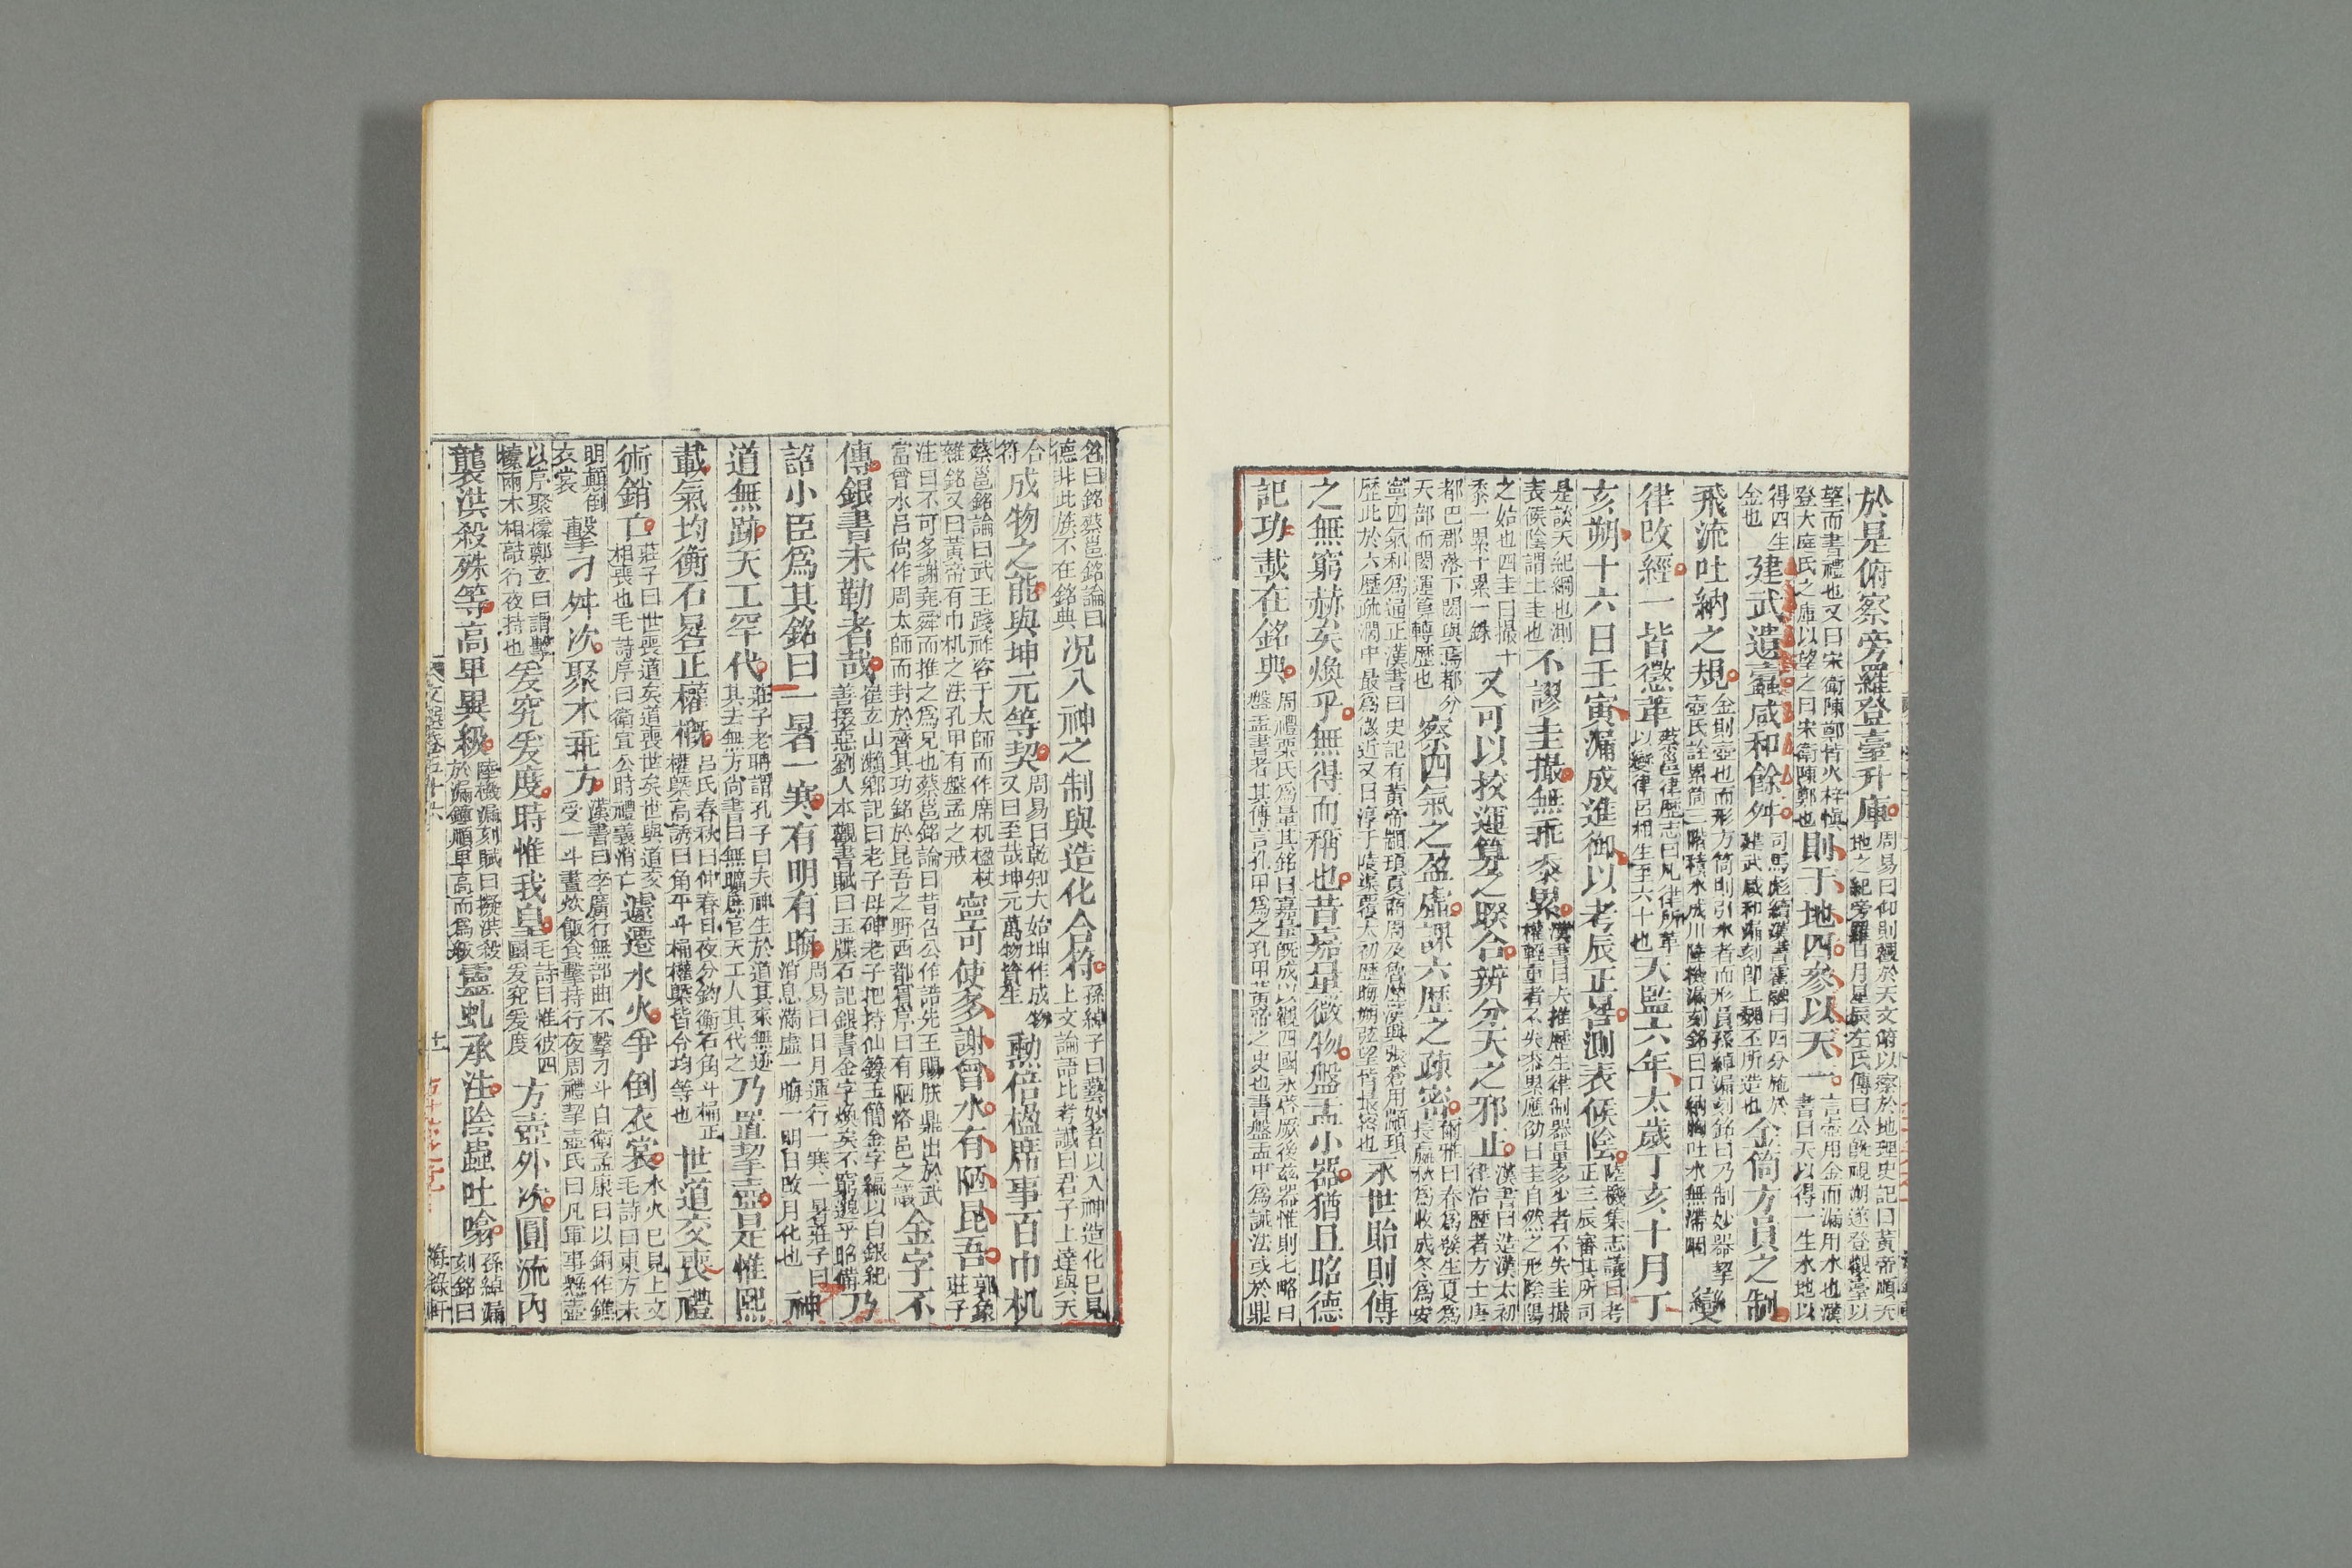 於是俯察旁羅登臺升庫周易曰仰則觀於天文俯以察於地理史記曰黃帝順天地之紀旁羅日月星辰左氏傳曰公旣視朔遂登觀臺以
望而書禮也又曰宋衛陳鄭皆火梓愼登大庭氏之庫以望之曰宋衛陳鄭也則于地四參以天一言壺用金而漏用水也漢書曰天以得一生水地以
得四生金也建武遺蠹咸和餘舛司馬彪續漢書霍融曰四分施於建武咸和漏刻卽上魏丕所造也金筒方員之制
飛流吐納之規金則壺也而形方筒則引水者而形員孫綽漏刻銘曰乃制妙器挈壺氏詮累筒三階積水成川陸機漏刻銘曰口納胸吐水無滯咽變
律改經一皆懲革蔡邕律歷志曰凡律所革以變律呂相生至六十也天監六年太歲丁亥十月丁
亥朔十六日壬寅漏成進御以考辰正晷測表候陰陸機集志議曰考正三辰審其所司
是談天紀綱也測表候陰謂土圭也不謬圭撮無乖黍累漢書曰夫推歷生律制器量多少者不失圭撮權輕重者不失黍累應劭曰圭自然之形陰陽
之始也四圭曰撮十黍一累十累一銖又可以挍運算之睽合辨分天之邪正漢書曰造漢太初律治歷者方士唐
都巴郡落下閎與焉都分天部而閎運算轉歷也察四氣之盈虛課六歷之疎密爾雅曰春爲發生夏爲長嬴秋爲收成冬爲安
寧四氣和爲通正漢書曰史記有黃帝顓頊夏殷周及魯歷漢興張蒼用顓頊歷比於六歷疏濶中最爲微近又曰淳于陵渠覆太初歷晦朔弦望皆最密也永世貽則傳
之無窮赫矣煥乎無得而稱也昔嘉量微物盤盂小器猶且昭德
記功載在銘典周禮㮚氏爲量其銘曰嘉量旣成以觀四國永啓厥後茲器惟則七略曰盤盂書者其傳言孔甲爲之孔甲黃帝之史也書盤盂中爲誡法或於鼎
名曰銘蔡邕銘論曰德非此族不在銘典況入神之制與造化合符孫綽子曰藝妙者以入神造化已見上文論語比考讖曰君子上達與天
合符成物之能與坤元等契周易曰乾知大始坤作成物又曰至哉坤元萬物資生勳倍楹席事百巾机
蔡邕銘論曰武王踐祚咨于太師而作席机楹杖雜銘又曰黃帝有巾机之法孔甲有盤盂之戒寧可使多謝曾水有陋昆吾郭象莊子
注曰不可多謝堯舜而推之爲兄也蔡邕銘論曰昔召公作誥先王賜朕鼎出於武當曾水呂尙作周太師而封於齊其功銘於昆吾之野西都賓序曰有陋洛邑之議金字不
傳銀書未勒者哉崔玄山瀨鄉記曰老子母碑老子把持仙籙玉簡金字編以白銀紀善掇惡劉人本觀書賦曰玉牒石記銀書金字煥矣不窮邈乎昭備乃
詔小臣爲其銘曰一暑一寒有明有晦周易曰日月運行一寒一暑莊子曰消息滿虛一晦一明日改月化也神
道無跡天工罕代莊子老聃謂孔子曰夫神生於道其來無迹其去無方尙書曰無曠庶官天工人其代之乃置挈壺是惟熙
載氣均衡石晷正權槪呂氏春秋曰仲春日夜分鈞衡石角斗桶正權槩高誘曰角平斗桶權槩皆令均等也世道交喪禮
術銷亡莊子曰世喪道矣道喪世矣世與道交相喪也毛詩序曰衛宣公時禮義消亡遽遷水火爭倒衣裳水火已見上文毛詩曰東方未
明顚倒衣裳擊刁舛次聚木乖方漢書曰李廣行無部曲不擊刁斗自衛孟康曰以銅作鐎受一斗晝炊飯食擊持行夜周禮挈壺氏曰凡軍事懸壺
以序聚㯓鄭玄曰謂擊㯓兩木相敲行夜持也爰究爰度時惟我皇毛詩曰惟彼四國爰究爰度方壺外次圓流內
襲洪殺殊等高卑異級陸機漏刻賦曰擬洪殺於漏鍾順卑高而爲級靈虬承注陰蟲吐噏孫綽漏刻銘曰
文選卷五十六
十一
海錄軒